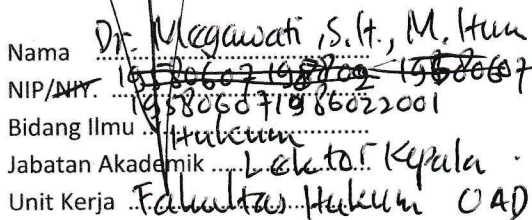 Nama Dr. Megawati, S.H., M.Hum
NIP/NIY.
195806071986022001
Bidang Ilmu Hukum
Jabatan Akademik Lektor Kepala
Unit Kerja Fakultas Hukum UAD